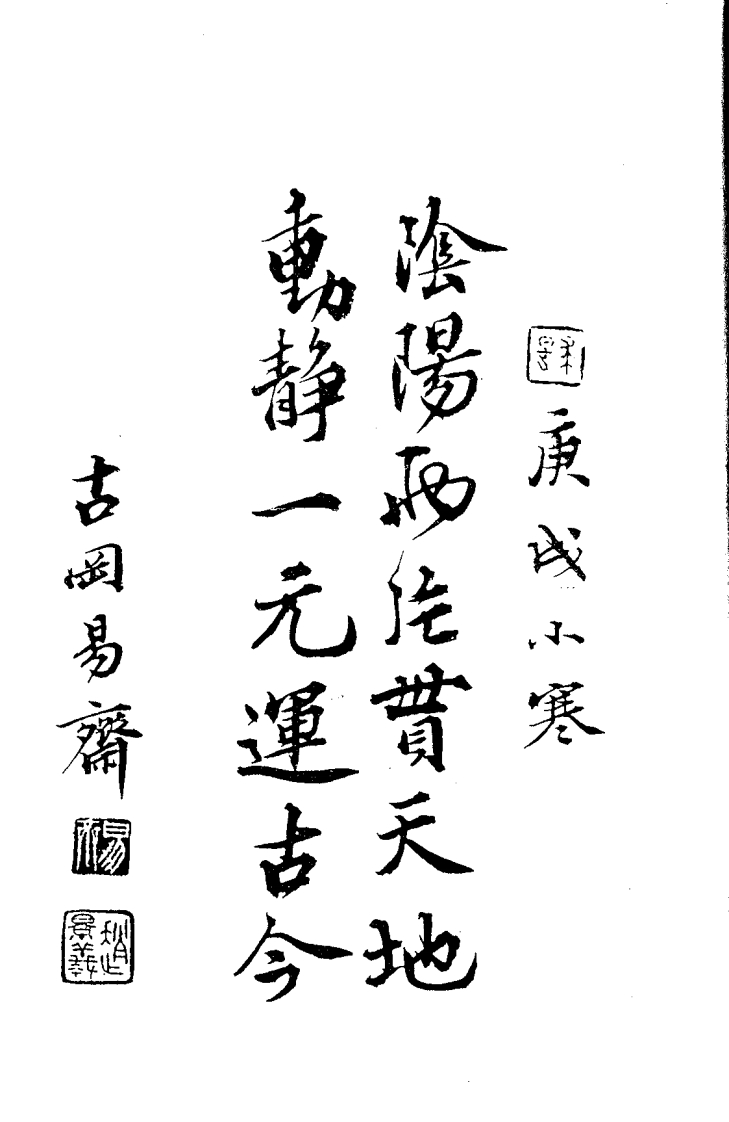 庚戌小寒
陰陽兩貫天地
動静一元運古今
古岡易齋
趙景羲